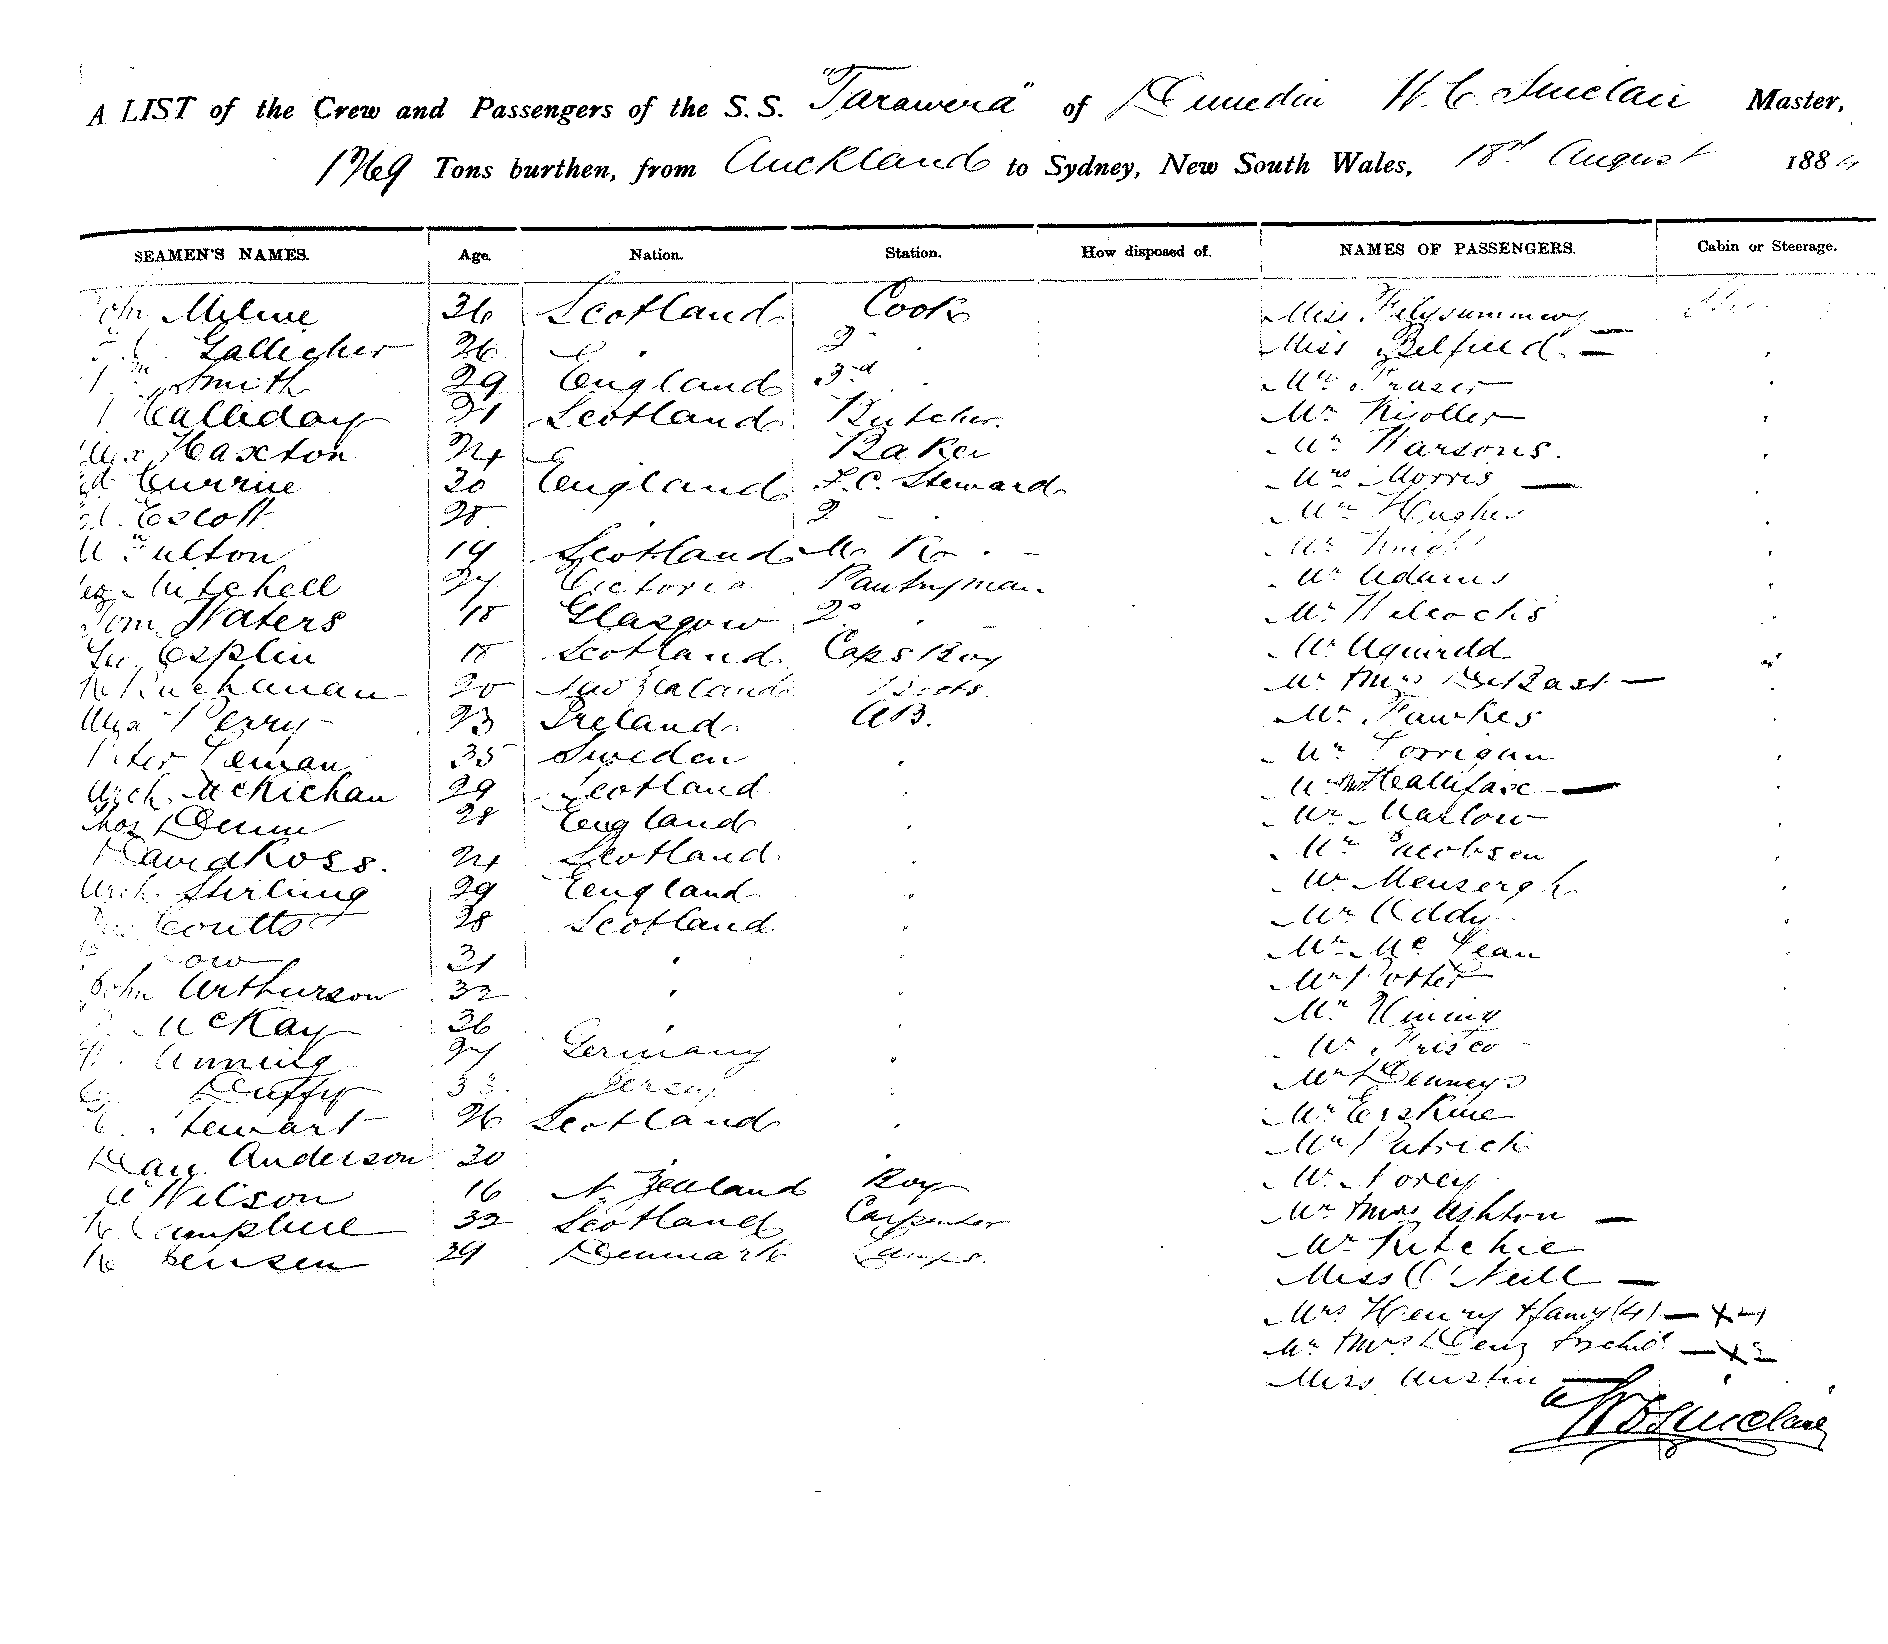 A LIST of the Crew and Passengers of the S.S. "Tarawera" of Dunedin W. C. Sinclair Master,
1769 Tons burthen, from Auckland to Sydney, New South Wales, 18th August 1884
SEAMEN'S NAMES. Age. Nation. Station. How disposed of. NAMES OF PASSENGERS. Cabin or Steerage.
John Milne 36 Scotland Cook Miss
Gallicher 26 " 2 " Miss Belfield —
Smith 29 England 3rd " Mr Frazer
Halliday 21 Scotland Butcher Mr
Alex Haxton 24 " Baker Mr Warsons
Currie 30 England F.C. Steward Mrs Morris —
Escott 28 2 " Mr Hughes
Fulton 19 Scotland M. R. Mr Knight
Mitchell 27 Victoria Pantryman Mr Adams
Tom Waters 18 Glasgow 2 " Mr Wilcocks
Geo. Esplin 18 Scotland Caps Boy Mr
Buchanan 20 New Zealand Boots Mr & Mrs —
Alex Perry 23 Ireland AB. Mr Fawkes
Peter Leman 35 Sweden " Mr Corrigan
Arch. McKichan 29 Scotland Mr & Mrs Hallifaxe —
Thos Dunn 28 England " Mr Marlow
David Ross. 24 Scotland Mr Jacobsen
Arch. Stirling 29 England " Mr
Coutts 28 Scotland " Mr Addy
31 " " Mr Mc Lean
John Arthurson 32 " " Mr Potter
McKay 36 " " Mr
Anning 27 Germany " Mr Frisco
Duffy 33 Jersey Mr Denneys
Stewart 26 Scotland " Mr Erskine
Anderson 30 " Mr Patrick
A Wilson 16 N. Zealand Boy Mr
Campbell 32 Scotland Carpenter Mr & Mrs Ashton —
Jensen 29 Denmark Lamps. Mr Ritchie
Miss O'Neill —
Mrs Henry & famy (4) —
Mr & Mrs —
Miss Austin —
W C Sinclair